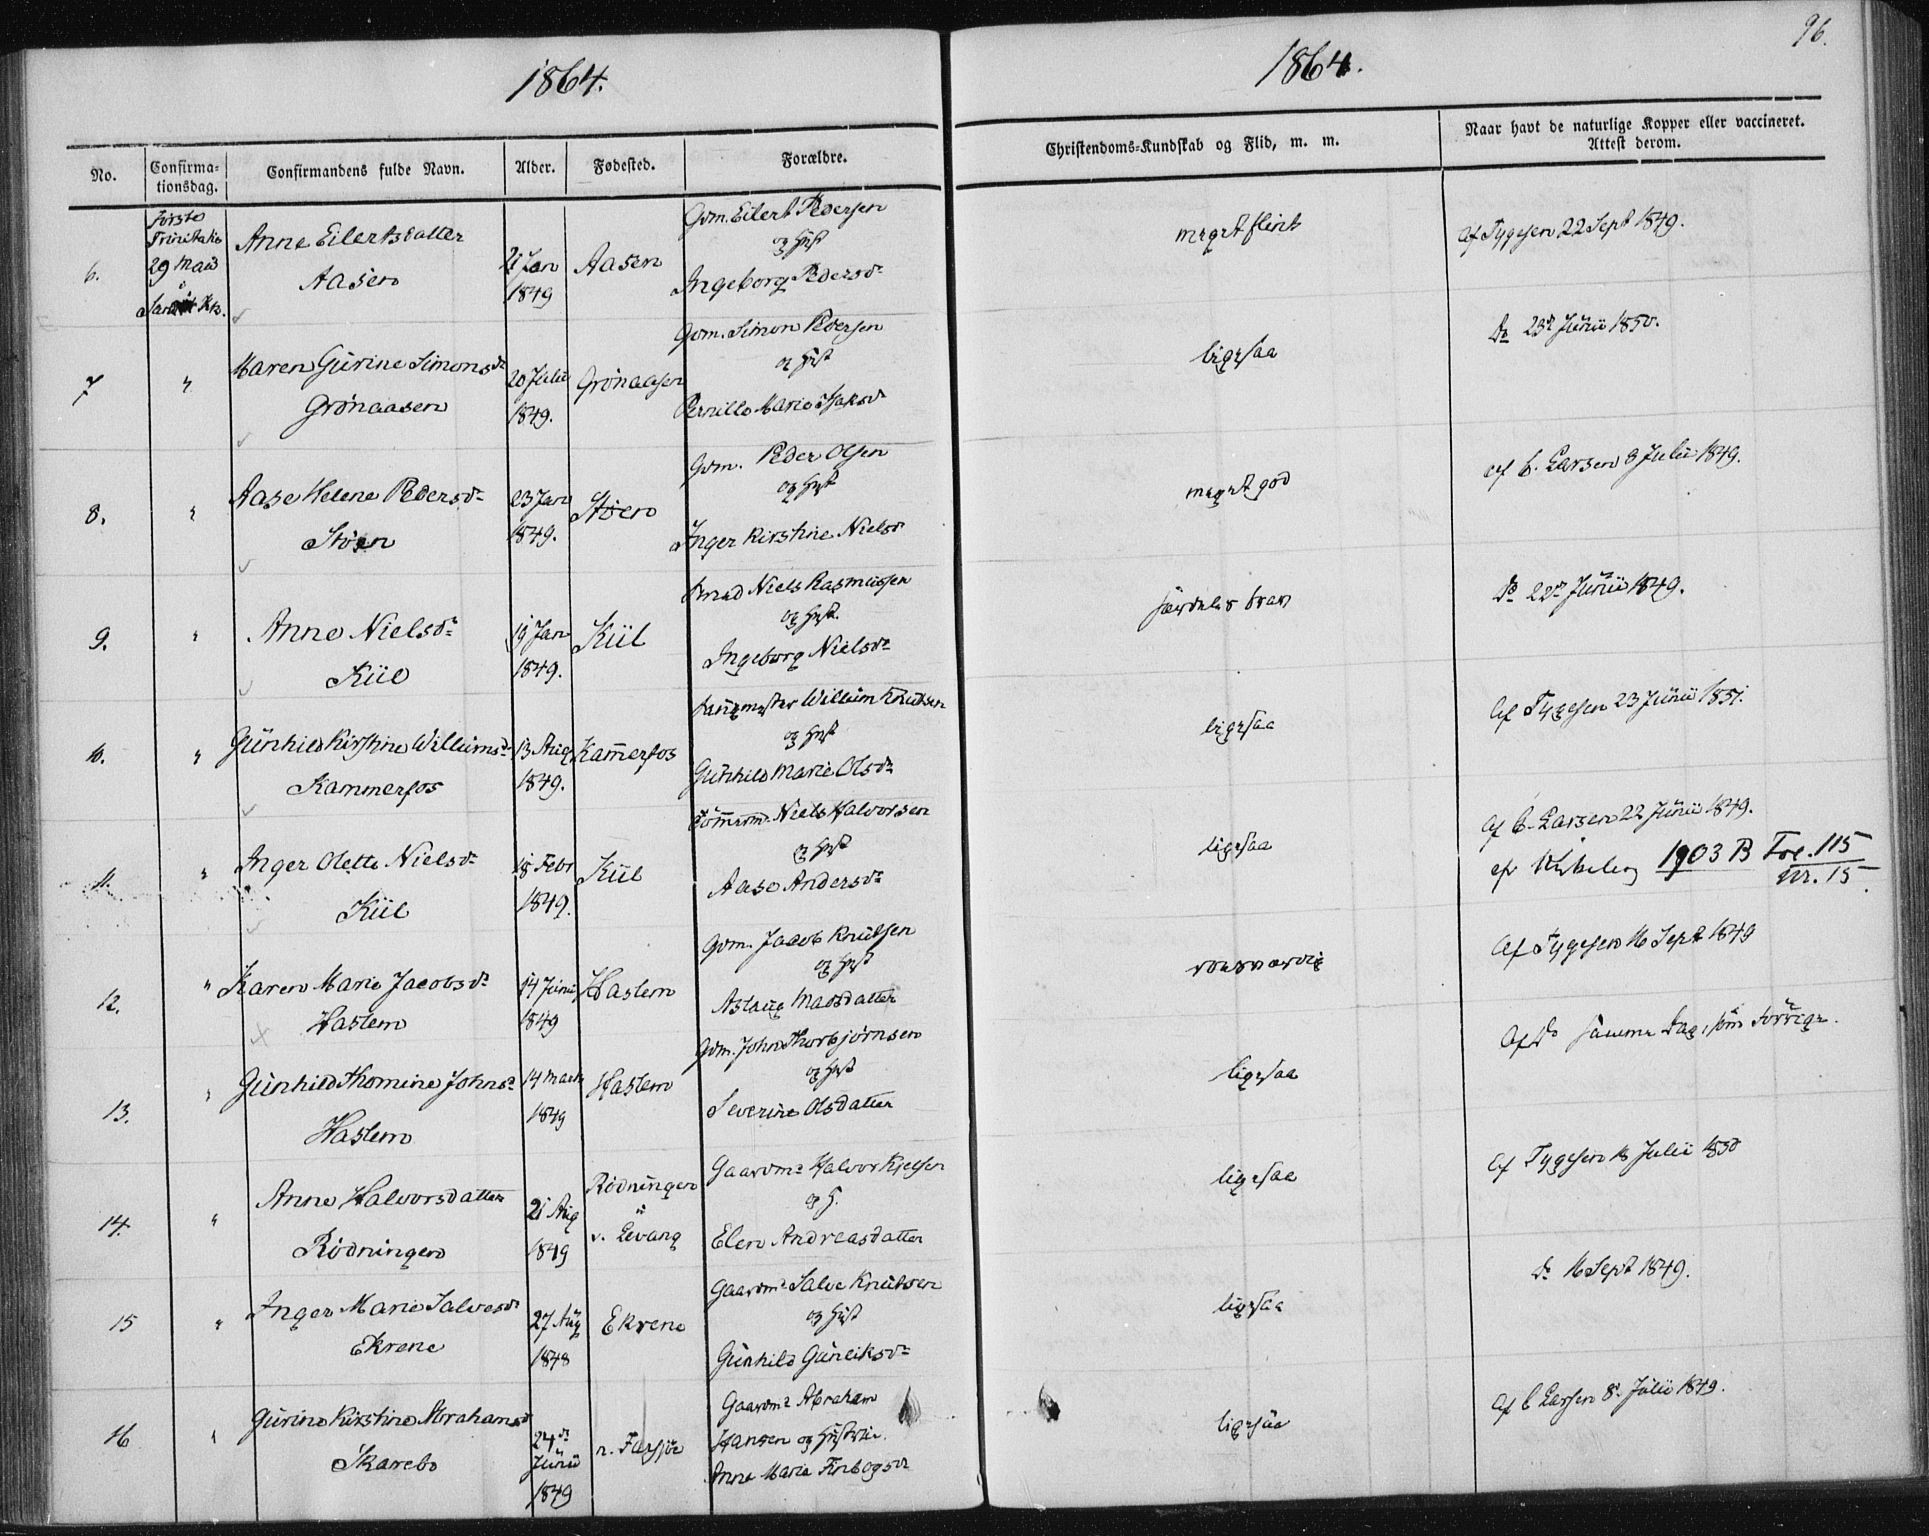 96.
1864.
1864.
No.
Confirma-
tionsdag.
Confirmandens fulde Navn.
Alder.
Fødested.
Forældre.
Christendoms-Kundskab og Flid, m. m.
Naar havt de naturlige Kopper eller vaccineret.
Attest derom.
6.
Første
Trinitatis
29 Maii
i
Anne Eilertsdatter
Aasen
21 Jan
1849
Aasen
Gdm. Eilert Pedersen
og Hust
Ingeborg Pedersdr
meget flink
Af Tygesen 22 Sept 1849.
7
"
Maren Gurine Simonsdr
Grønaasen
20 Julii
1849.
Grønaasen
Gdm. Simon Pedersen
og Hust
Pernille Marie Isaksdr
ligesaa
Do 23de Junii 1850.
8.
"
Aase Helene Pedersdr
Støen
23 Jan
1849.
Støen
Gdm. Peder Olsen
og Hust
Inger Kirstine Nielsdr
meget god
af C. Larsen 8 Julii 1849.
9.
"
Anne Nielsdr
Kiil
19 Jan
1849.
Kiil
Niels Rasmussen
og Hust.
Ingeborg Nielsdr
særdeles brav
Do 22de Junii 1849.
10.
"
Gunhild Kirstine Willumsdr
Kammerfos
13 Aug
1849.
Kam̄erfos
Willum Knudsen
og Hust
Gunhild Marie Olsdr
ligesaa
Af Tygesen 23 Junii 1851.
11.
"
Inger Olette Nielsdr
Kiil
18 Febr
1849.
Kiil
Töm̄erm. Niels Halvorsen
og Hust
Aase Andersdr
ligesaa
Af C. Larsen 22 Junii 1849.
1903 B Fol. 115
Nr. 15.
12.
"
Karen Marie Jacobsdr
Haslem
14 Junii
1849
Haslem
Gdm. Jacob Knudsen
og Hust
Aslaug Madsdatter
roesværdig
Af Tygesen 16 Sept 1849
13.
"
Gunhild Thomine Johnsdr
Haslem
14 Marts
1849
Haslem
Gdm. John Thorbjørnsen
og Hust
Severine Olsdatter
ligesaa
Af Do samme Dag, som Forrige.
14.
"
Anne Halvorsdatter
Rødningen
21 Aug
1849
Rødningen
i
v. Levang
Gaardmd Halvor Kjelsen
og H.
Elen Andreasdatter
ligesaa
Af Tygesen 18 Julii 1850
15
"
Inger Marie Salvesdr
Ekrene
27 Aug
1848
Ekrene
Gaardmd Salve Knudsen
og Hust
Gunhild Gunleiksdr
ligesaa
Do 16 Sept 1849.
16
"
Gurine Kirstine Abrahamsdr
Skarebo
24de
Junii
1849
n. Farsjøe
Gaardmd Abraham
Hansen og Hustrue
Anne Marie Finbogsdr
ligesaa
Af C Larsen 8. Julii 1849.